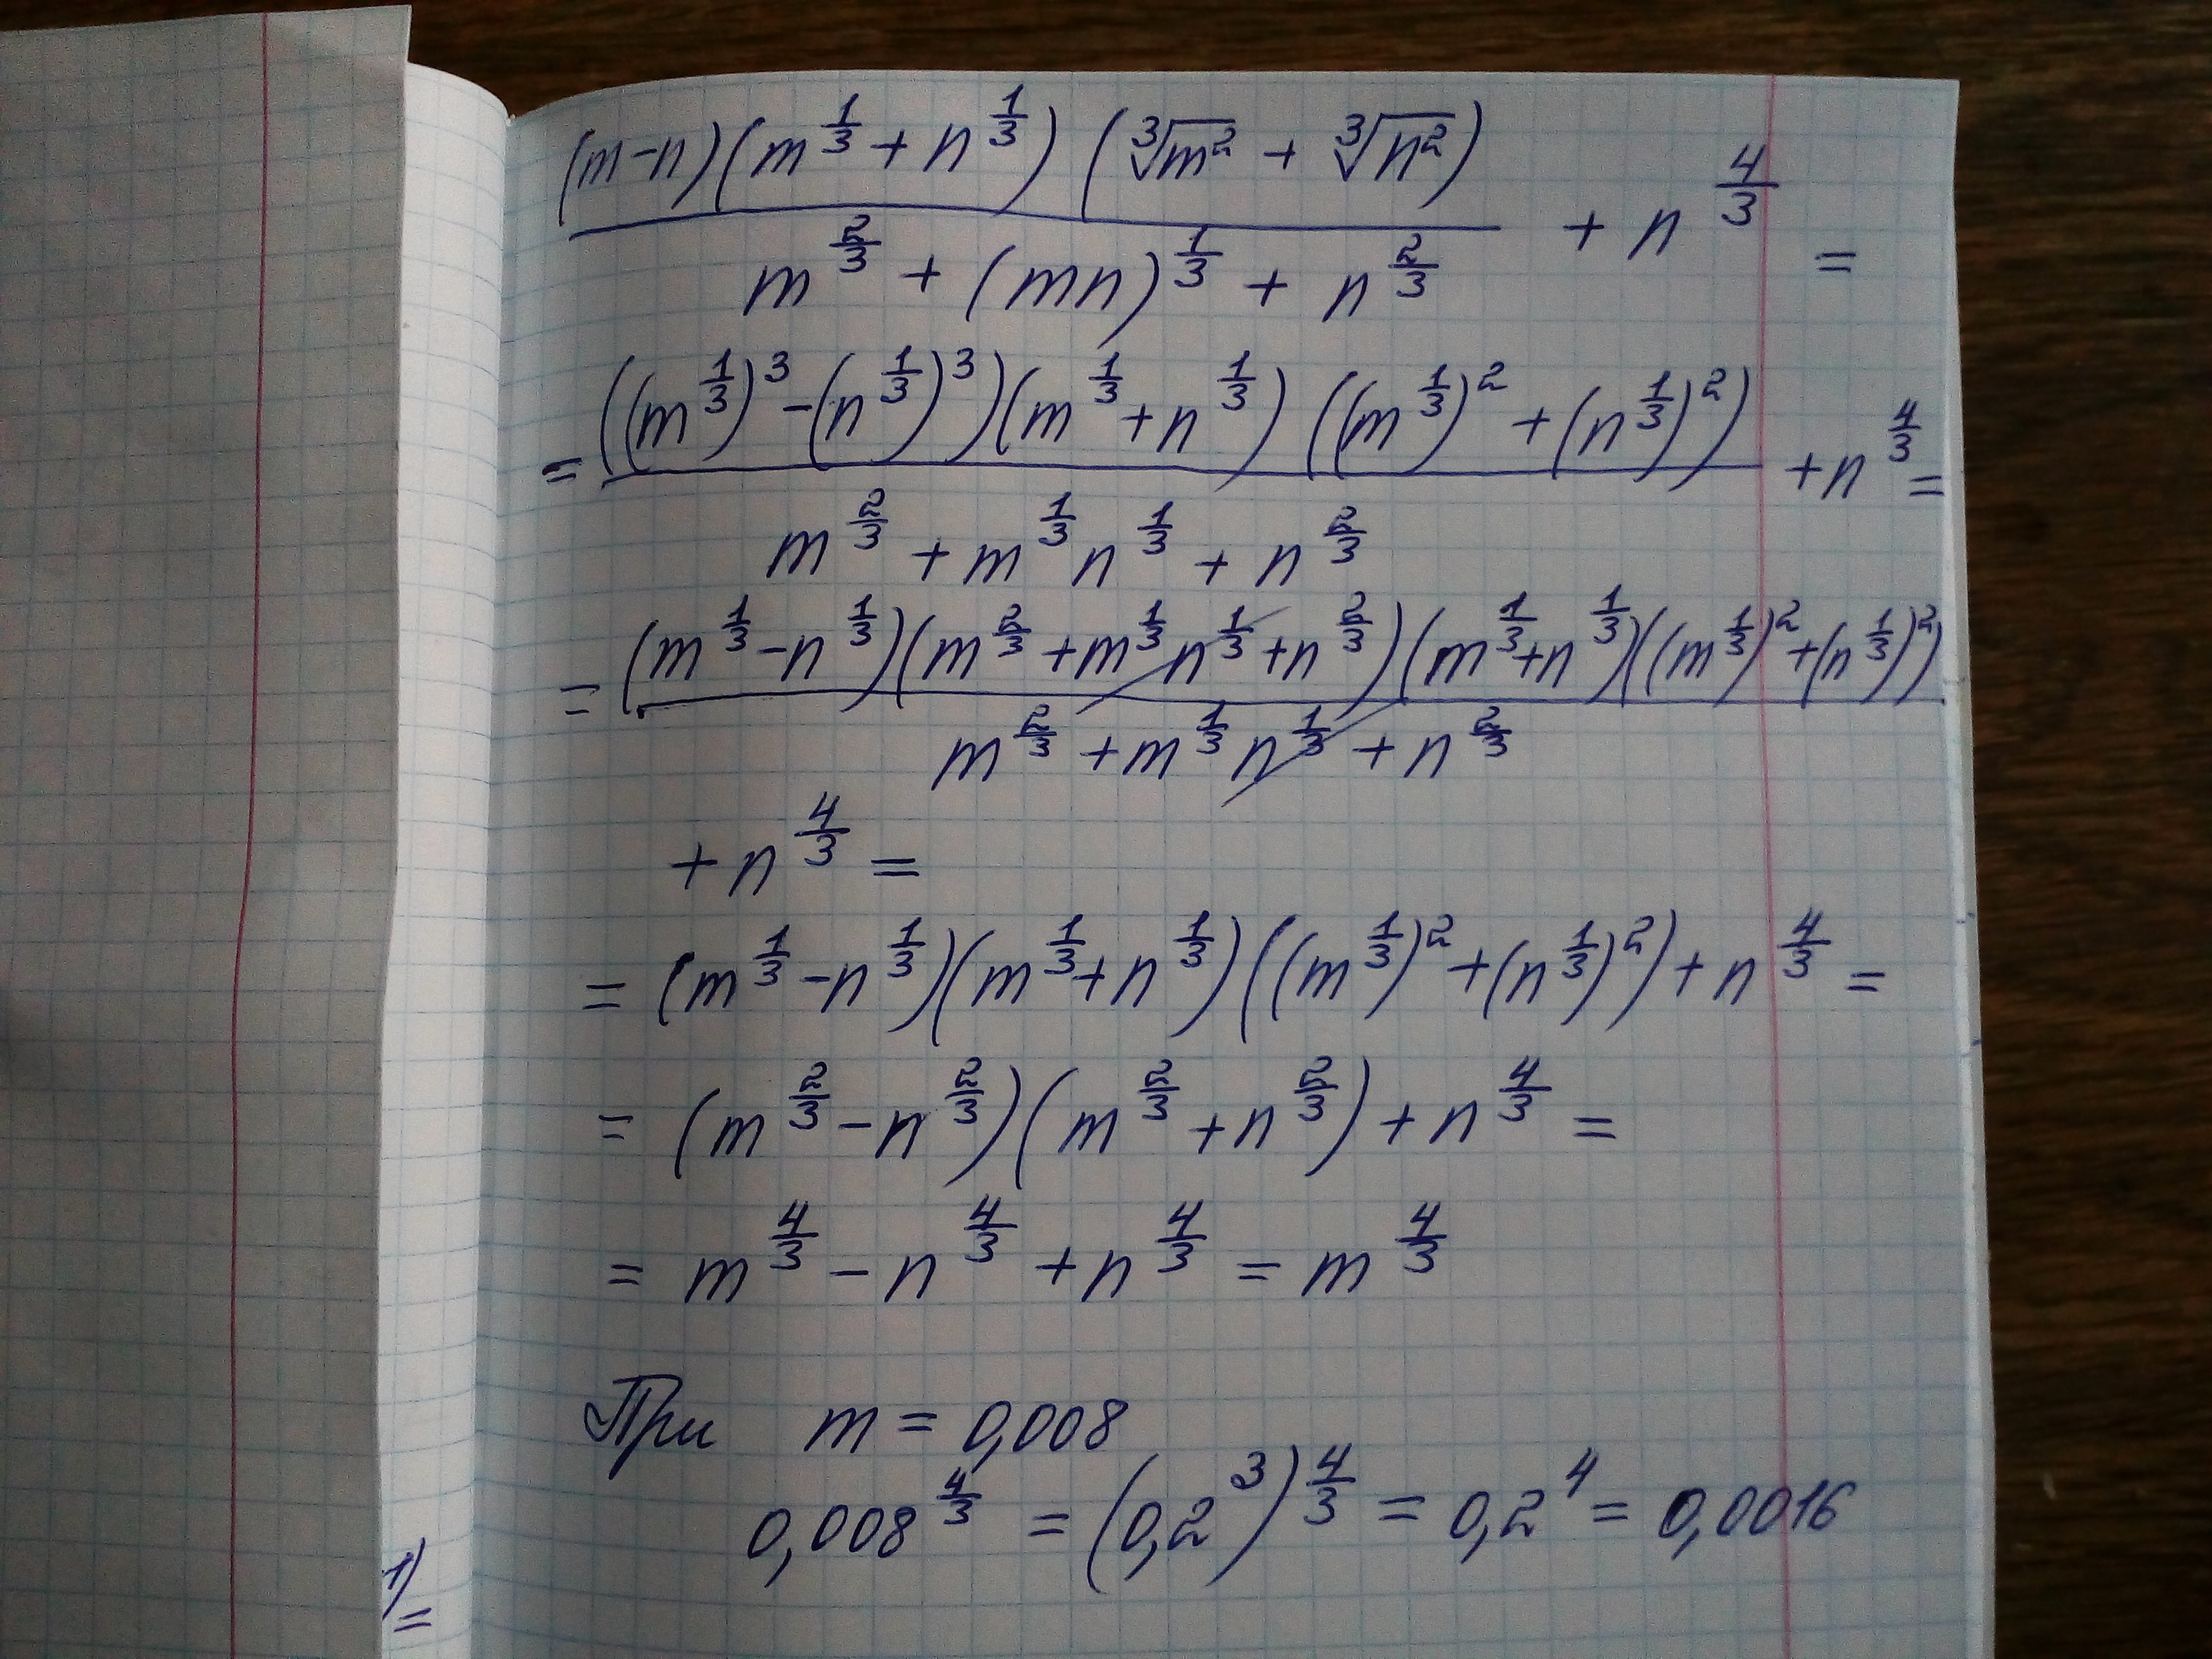 (m-n)(m^{1/3} + n^{1/3})(∛m² + ∛n²)
/ m^{2/3} + (mn)^{1/3} + n^{2/3} + n^{4/3} =
= ((m^{1/3})³ - (n^{1/3})³)(m^{1/3} + n^{1/3})((m^{1/3})² + (n^{1/3})²)
/ m^{2/3} + m^{1/3} n^{1/3} + n^{2/3} + n^{4/3} =
= (m^{1/3} - n^{1/3})(m^{2/3} + m^{1/3} n^{1/3} + n^{2/3})(m^{1/3} + n^{1/3})((m^{1/3})² + (n^{1/3})²)
/ m^{2/3} + m^{1/3} n^{1/3} + n^{2/3}
+ n^{4/3} =
= (m^{1/3} - n^{1/3})(m^{1/3} + n^{1/3})((m^{1/3})² + (n^{1/3})²) + n^{4/3} =
= (m^{2/3} - n^{2/3})(m^{2/3} + n^{2/3}) + n^{4/3} =
= m^{4/3} - n^{4/3} + n^{4/3} = m^{4/3}
При m = 0,008
0,008^{4/3} = (0,2³)^{4/3} = 0,2⁴ = 0,0016
1)
=